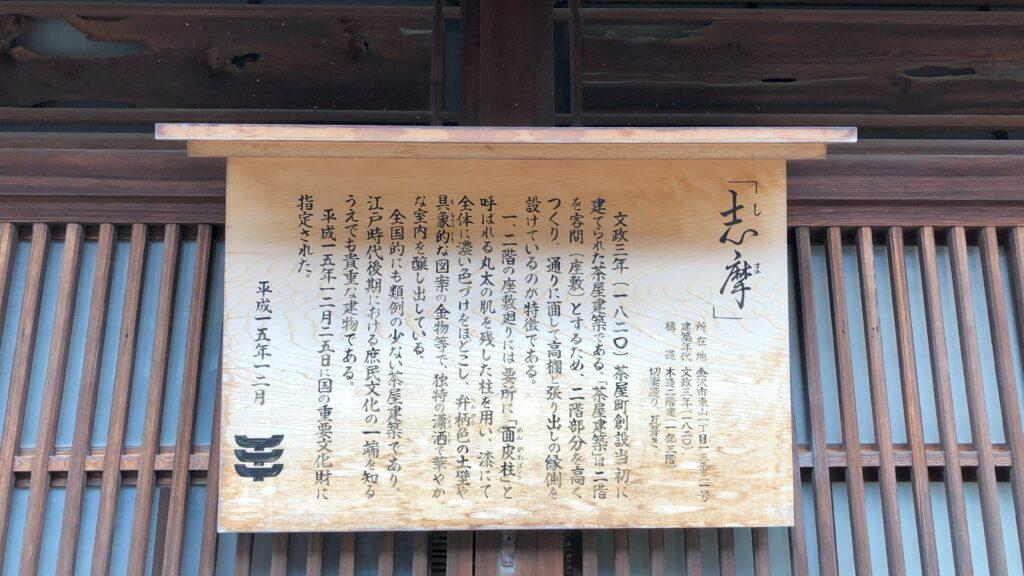 「志摩」
しま
所在地 金沢市東山一丁目一三番二一号
建築年代 文政三年（一八二〇）
構造 木造二階建（一部三階）
切妻造り 瓦葺き
文政三年（一八二〇）茶屋町創設当初に
建てられた茶屋建築である。「茶屋建築」は二階
を客間（座敷）とするため、二階部分を高く
つくり、通りに面して高欄と張り出しの縁側を
設けているのが特徴である。
一、二階の座敷廻りには要所に「面皮柱」と
めんかわばしら
呼ばれる丸太の肌を残した柱を用い、漆にて
全体に濃い色づけをほどこし、弁柄色の土壁や
具象的な図案の金物等で、独特の瀟洒で華やか
な室内を醸し出している。
全国的にも類例の少ない茶屋建築であり、
江戸時代後期における庶民文化の一端を知る
うえでも貴重な建物である。
平成一五年一二月二五日に国の重要文化財に
指定された。
平成一五年一二月